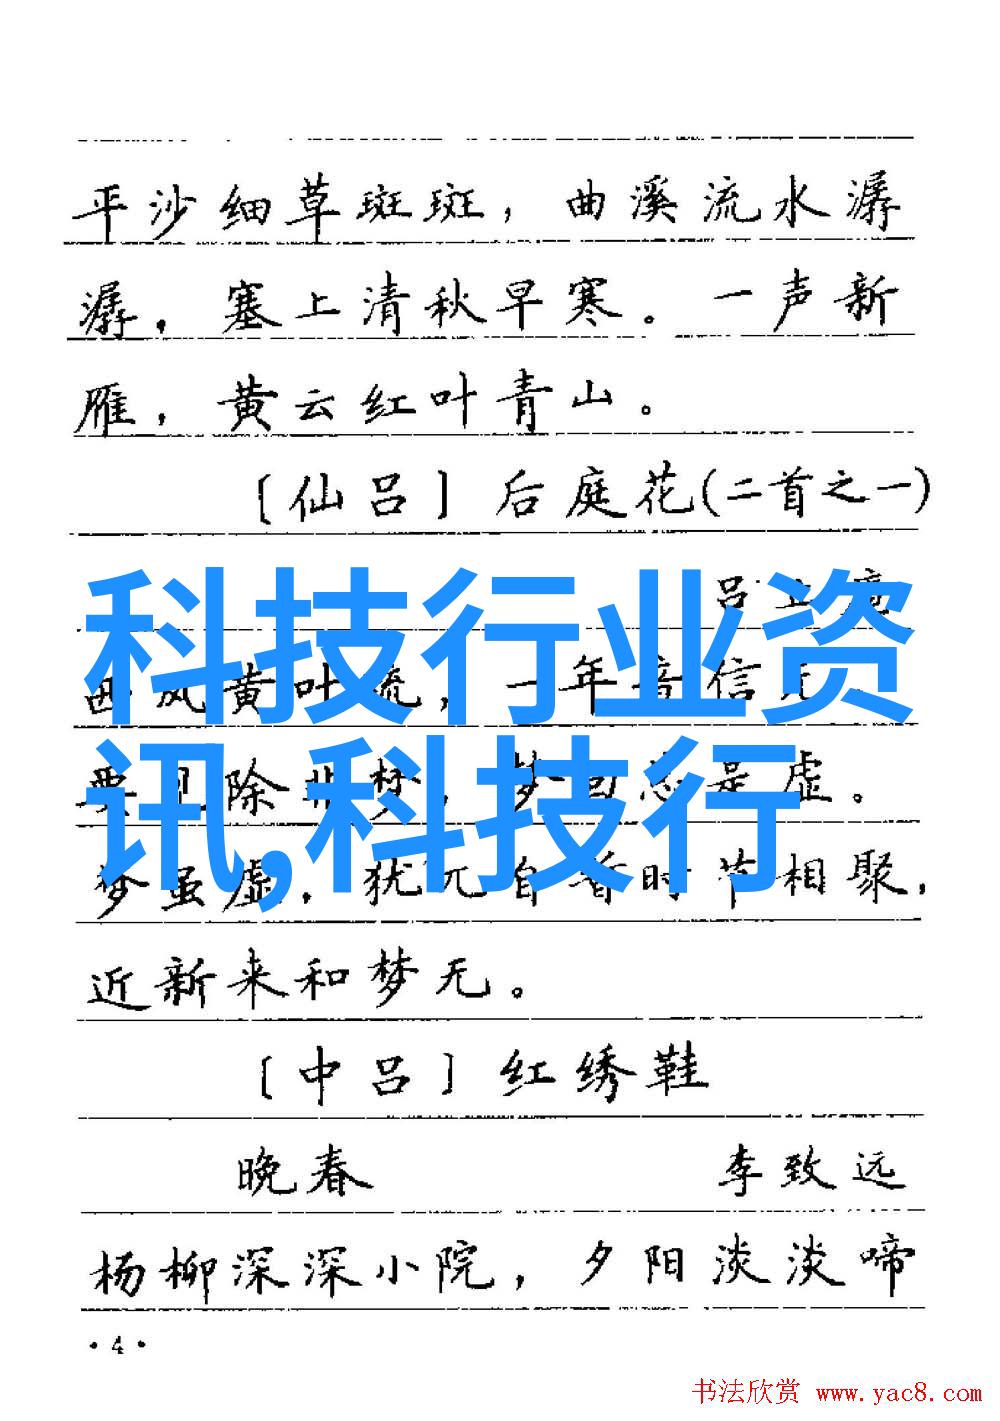 平沙细草斑斑，曲溪流水潺
潺，塞上清秋早寒。一声新
雁，黄云红叶青山。
〔仙吕〕后庭花(二首之一)
科技行业资
讯,科技行
吕
黄叶 一年音信
除非梦，梦 是虚。
梦虽虚，犹 自有时节相聚，
近新来和梦无。
〔中吕〕红绣鞋
晚春 李致远
杨柳深深小院，夕阳淡淡啼
·4·
书法欣赏 www.yac8.com